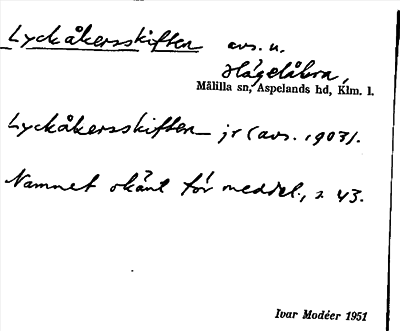 Lyckåkersskiften avs. u.
Hågelåkra,
Målilla sn, Aspelands hd, Klm. l.
Lyckåkersskiften jr (avs. 1903).
Namnet okänt för meddel., s. 43.
Ivar Modéer 1951